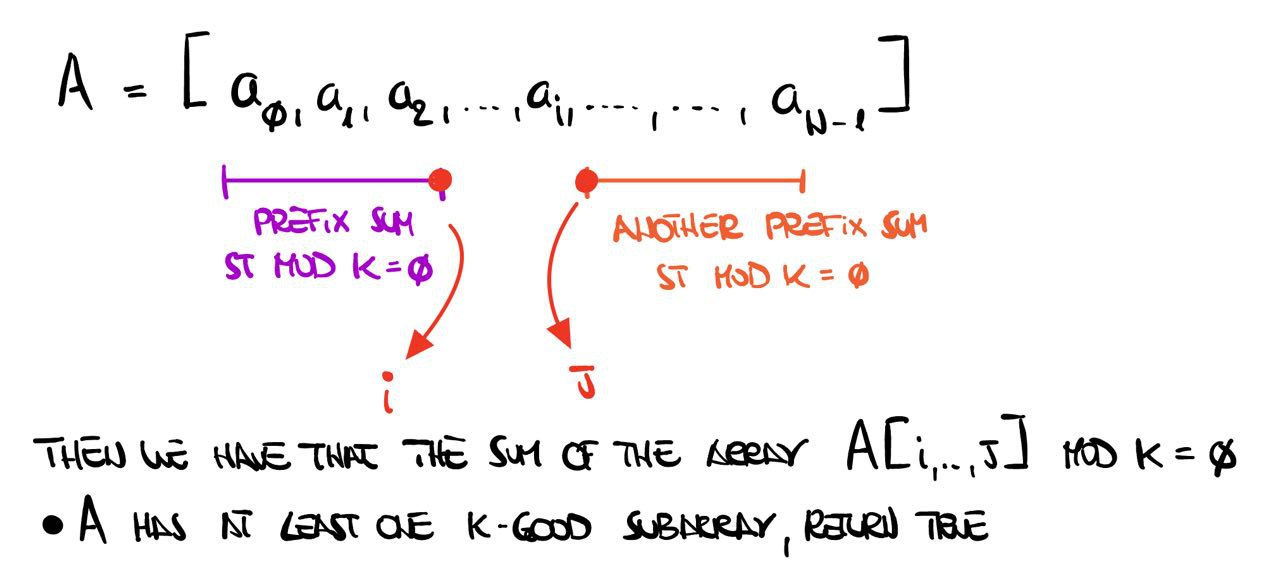 A = [ aø, a1, a2, ..., ai, ..., ..., aN-1 ]
PREFIX SUM
ST MOD K = ø
ANOTHER PREFIX SUM
ST MOD K = ø
i
J
THEN WE HAVE THAT THE SUM OF THE ARRAY A[i,..,J] MOD K = ø
• A HAS AT LEAST ONE K-GOOD SUBARRAY, RETURN TRUE